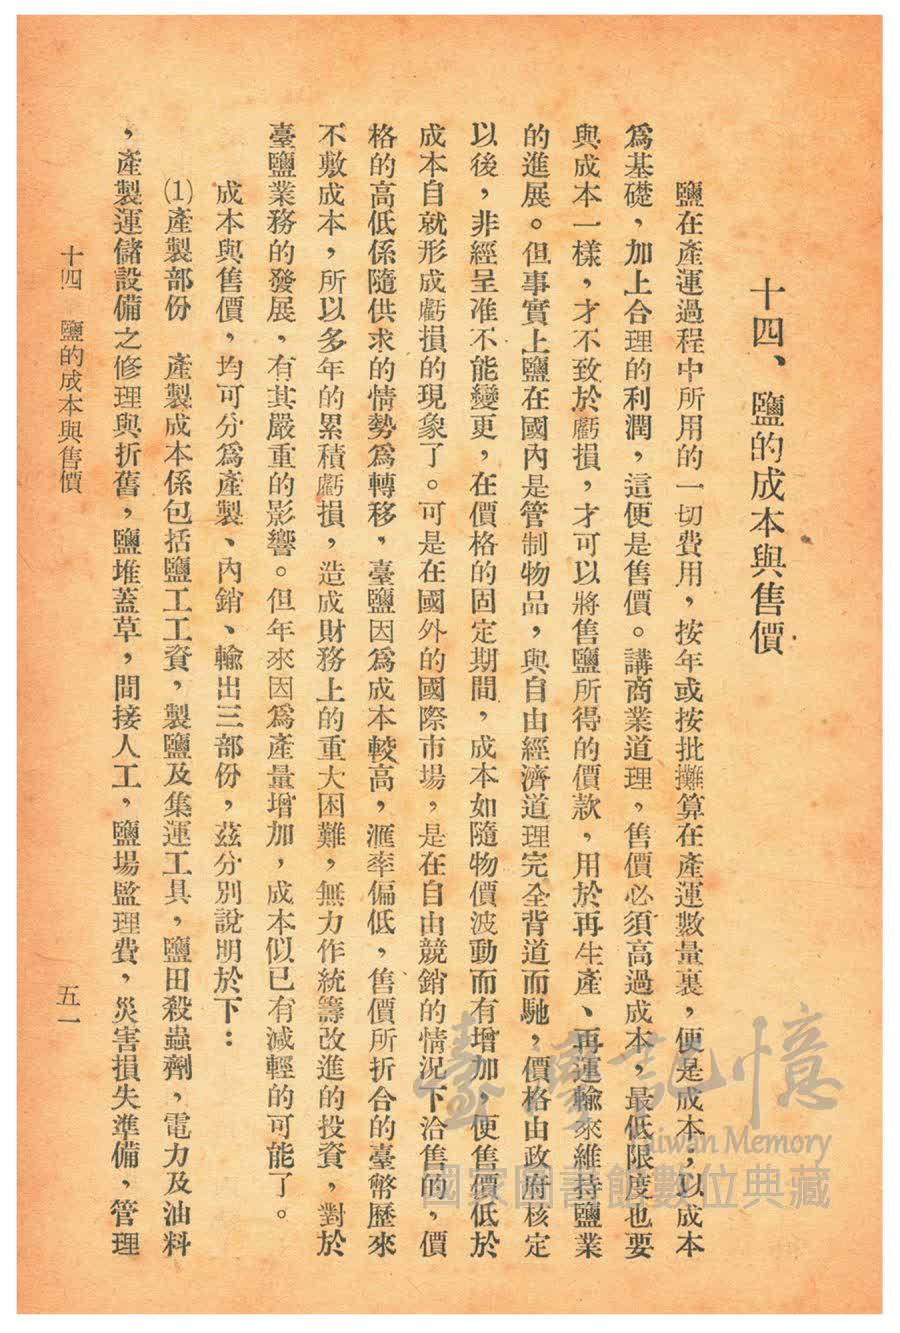 十四、鹽的成本與售價
鹽在產運過程中所用的一切費用，按年或按批攤算在產運數量裏，便是成本；以成本
爲基礎，加上合理的利潤，這便是售價。講商業道理，售價必須高過成本，最低限度也要
與成本一樣，才不致於虧損，才可以將售鹽所得的價款，用於再生產、再運輸來維持鹽業
的進展。但事實上鹽在國內是管制物品，與自由經濟道理完全背道而馳，價格由政府核定
以後，非經呈准不能變更，在價格的固定期間，成本如隨物價波動而有增加，便售價低於
成本自就形成虧損的現象了。可是在國外的國際市場，是在自由競銷的情況下洽售的，價
格的高低係隨供求的情勢爲轉移，臺鹽因爲成本較高，滙率偏低，售價所折合的臺幣歷來
不敷成本，所以多年的累積虧損，造成財務上的重大困難，無力作統籌改進的投資，對於
臺鹽業務的發展，有其嚴重的影響。但年來因爲產量增加，成本似已有減輕的可能了。
成本與售價，均可分爲產製、內銷、輸出三部份，茲分別說明於下：
⑴產製部份　產製成本係包括鹽工工資，製鹽及集運工具，鹽田殺蟲劑，電力及油料
，產製運儲設備之修理與折舊，鹽堆蓋草，間接人工，鹽場監理費，災害損失準備，管理
十四　鹽的成本與售價
五一
臺灣記憶
Taiwan Memory
國家圖書館數位典藏